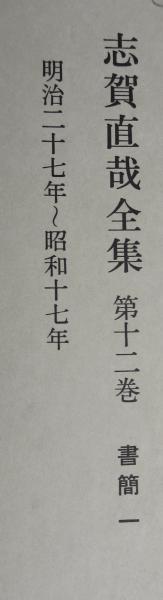 志賀直哉全集 第十二巻 書簡 一
明治二十七年〜昭和十七年